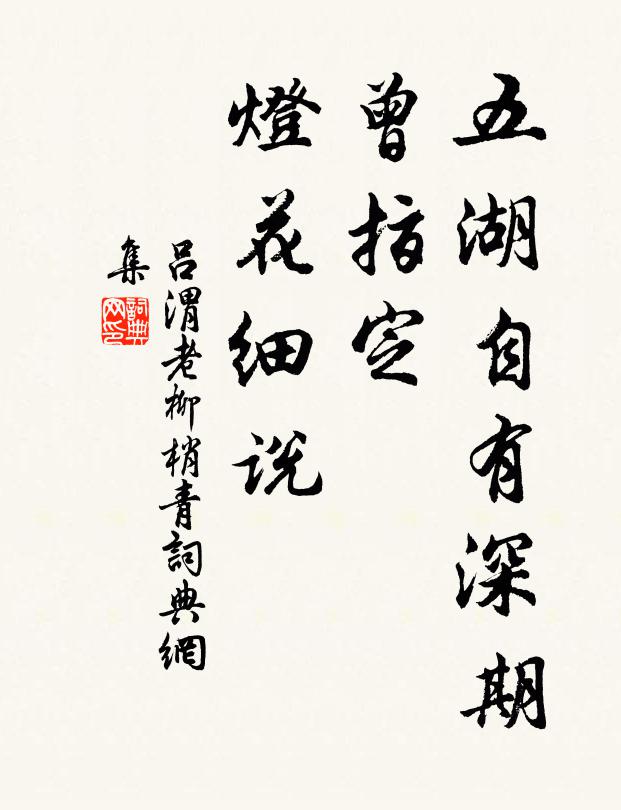 五湖自有深期
曾指定
燈花细説
吕渭老柳梢青詞典網
集
詞典網印